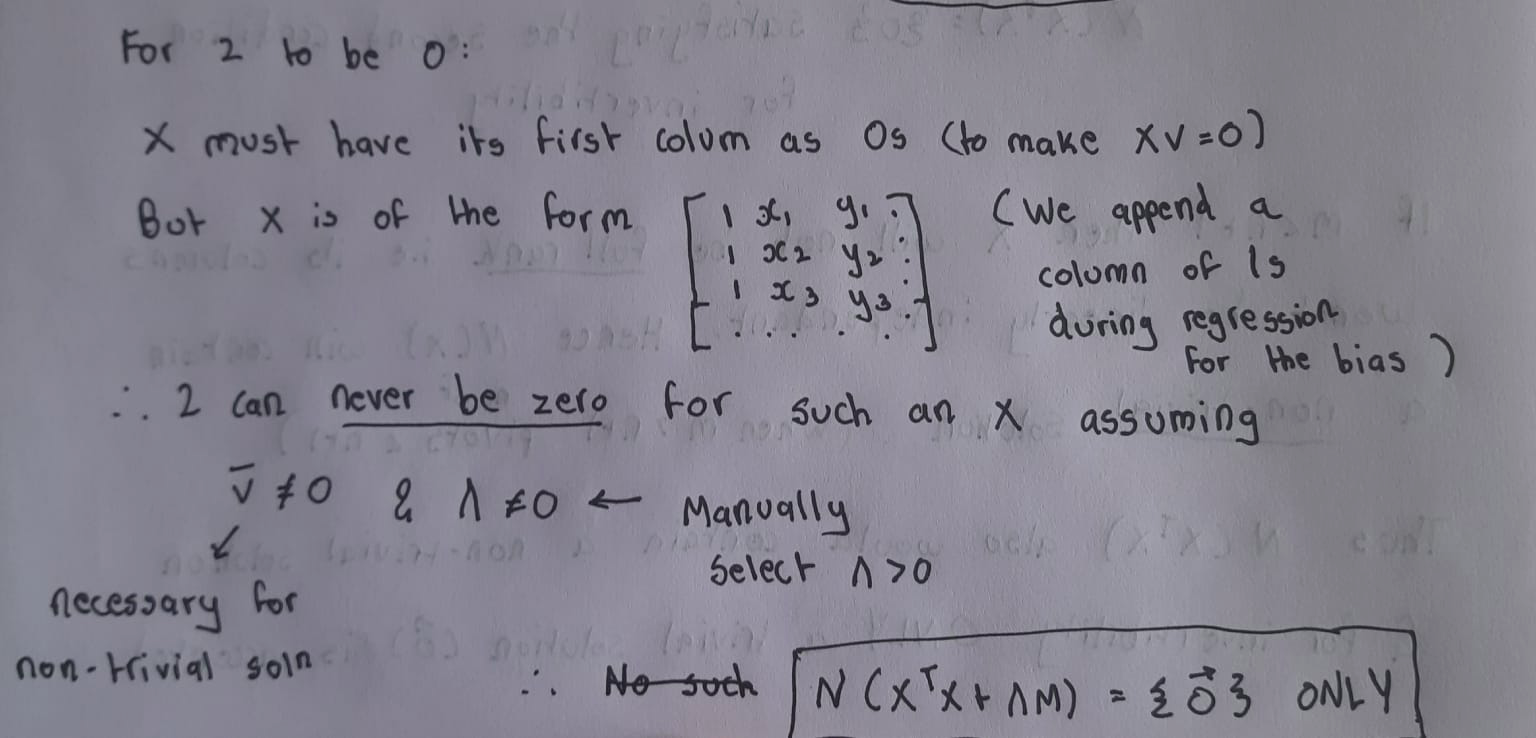 For 2 to be 0:
X must have its first colum as 0s (to make XV=0)
But X is of the form [ 1 x₁ y₁ . (We append a
1 x₂ y₂ : column of 1s
1 x₃ y₃ : during regression
. . . . . ] for the bias )
∴ 2 can never be zero for such an X assuming
v̄ ≠ 0 & Λ ≠ 0 ← Manually
Select Λ > 0
necessary for
non-trivial soln
∴ No such N (XᵀX + ΛM) = { 0⃗ } ONLY